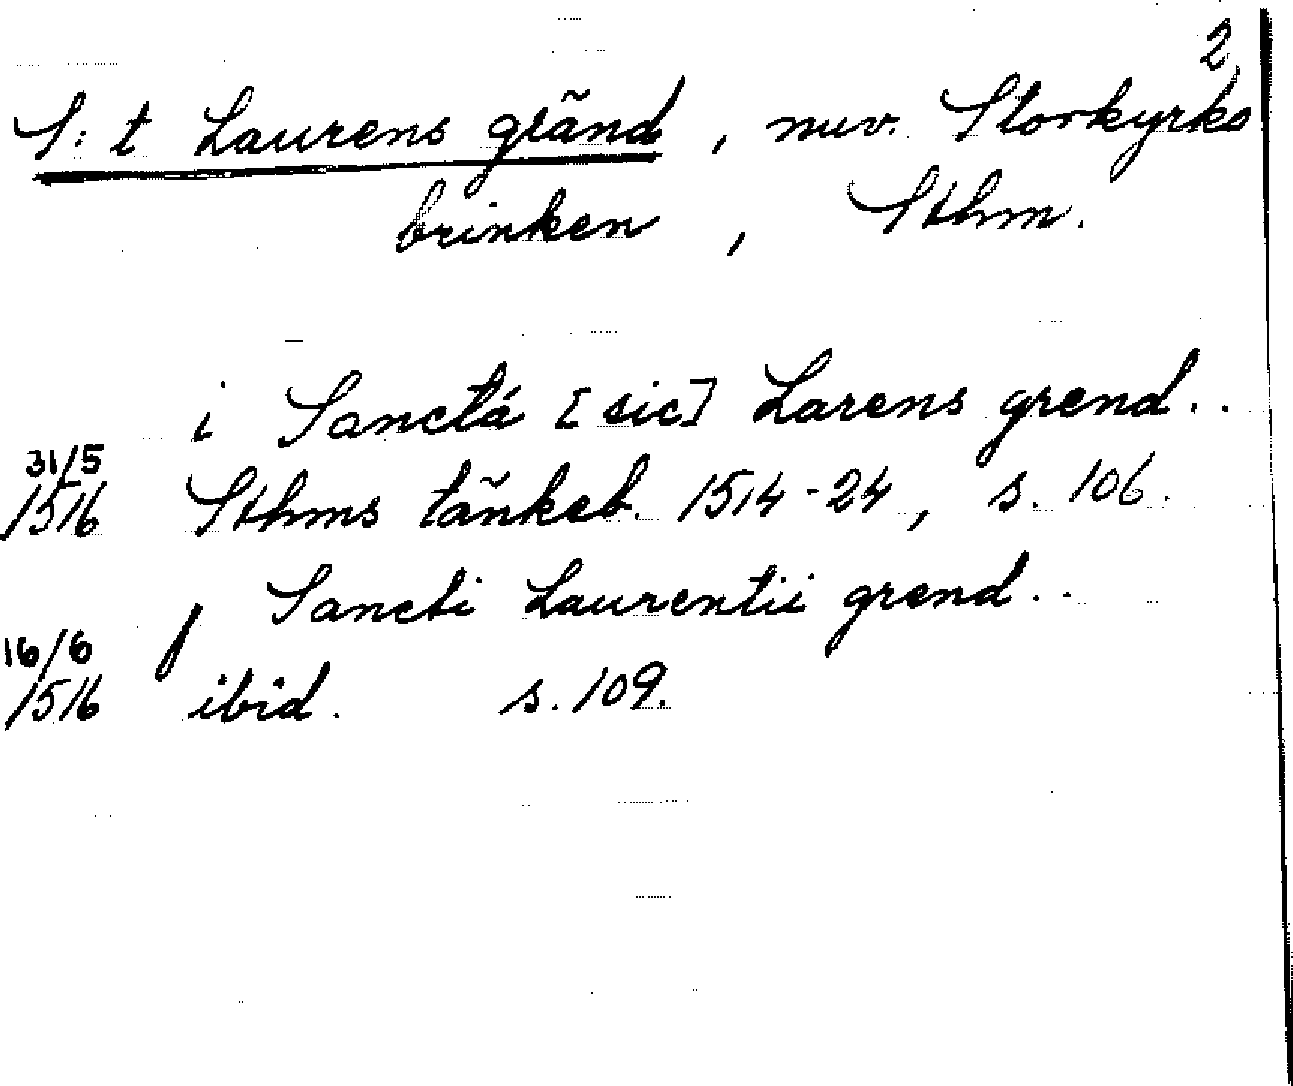 2
S:t Laurens gränd, nuv. Storkyrko
brinken, Sthm.
i Sanctá [sic] Larens grend..
31/5
1516 Sthms tänkeb. 1514-24, s. 106.
j Sancti Laurentii grend..
16/6
1516 ibid. s. 109.